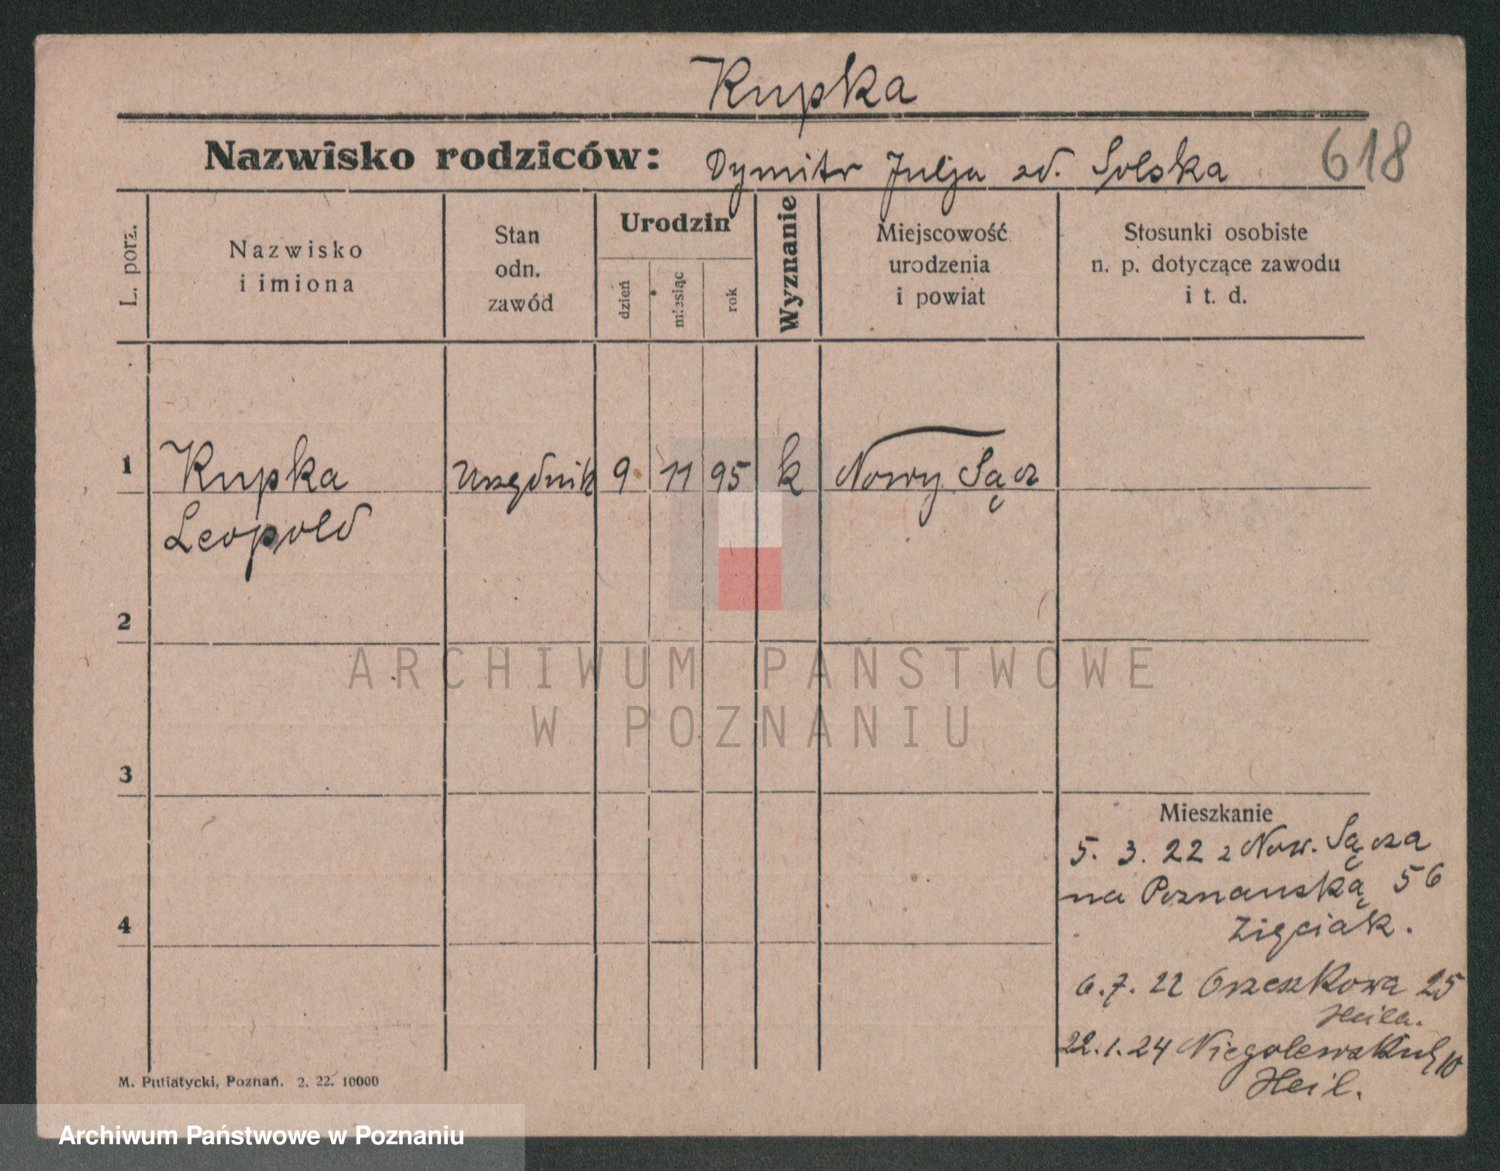 Kupka
618
Nazwisko rodziców: Dymitr Julja zd. Solska
L. porz.
Nazwisko
i imiona
Stan
odn.
zawód
Urodzin
dzień
miesiąc
rok
Wyznanie
Miejscowość
urodzenia
i powiat
Stosunki osobiste
n. p. dotyczące zawodu
i t. d.
1 Kupka Urzędnik 9 11 95 k Nowy Sącz
Leopold
2
ARCHIWUM PAŃSTWOWE
W POZNANIU
3
Mieszkanie
5. 3. 22 z Now. Sącza
na Poznanską 56
Zięciak.
4
6. 7. 22 Orzeszkowa 25
Heila.
22. 1. 24 Niegolewskich 10
Heil.
M. Putiatycki, Poznań. 2. 22. 10000
Archiwum Państwowe w Poznaniu